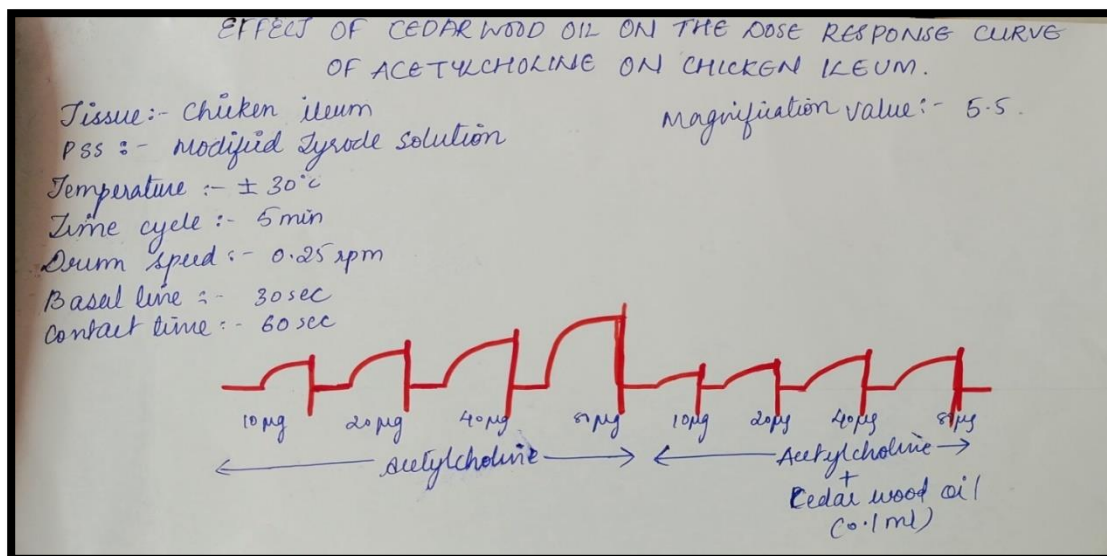 EFFECT OF CEDARWOOD OIL ON THE DOSE RESPONSE CURVE
OF ACETYLCHOLINE ON CHICKEN ILEUM.
Tissue:- Chicken ileum
Magnification value:- 5.5.
PSS :- Modified Tyrode solution
Temperature :- ± 30°c
Time cycle :- 5 min
Drum speed :- 0.25 rpm
Basal line :- 30 sec
Contact time :- 60 sec
10 μg 20 μg 40 μg 80 μg 10 μg 20 μg 40 μg 80 μg
Acetylcholine Acetylcholine
+
Cedar wood oil
(0.1 ml)